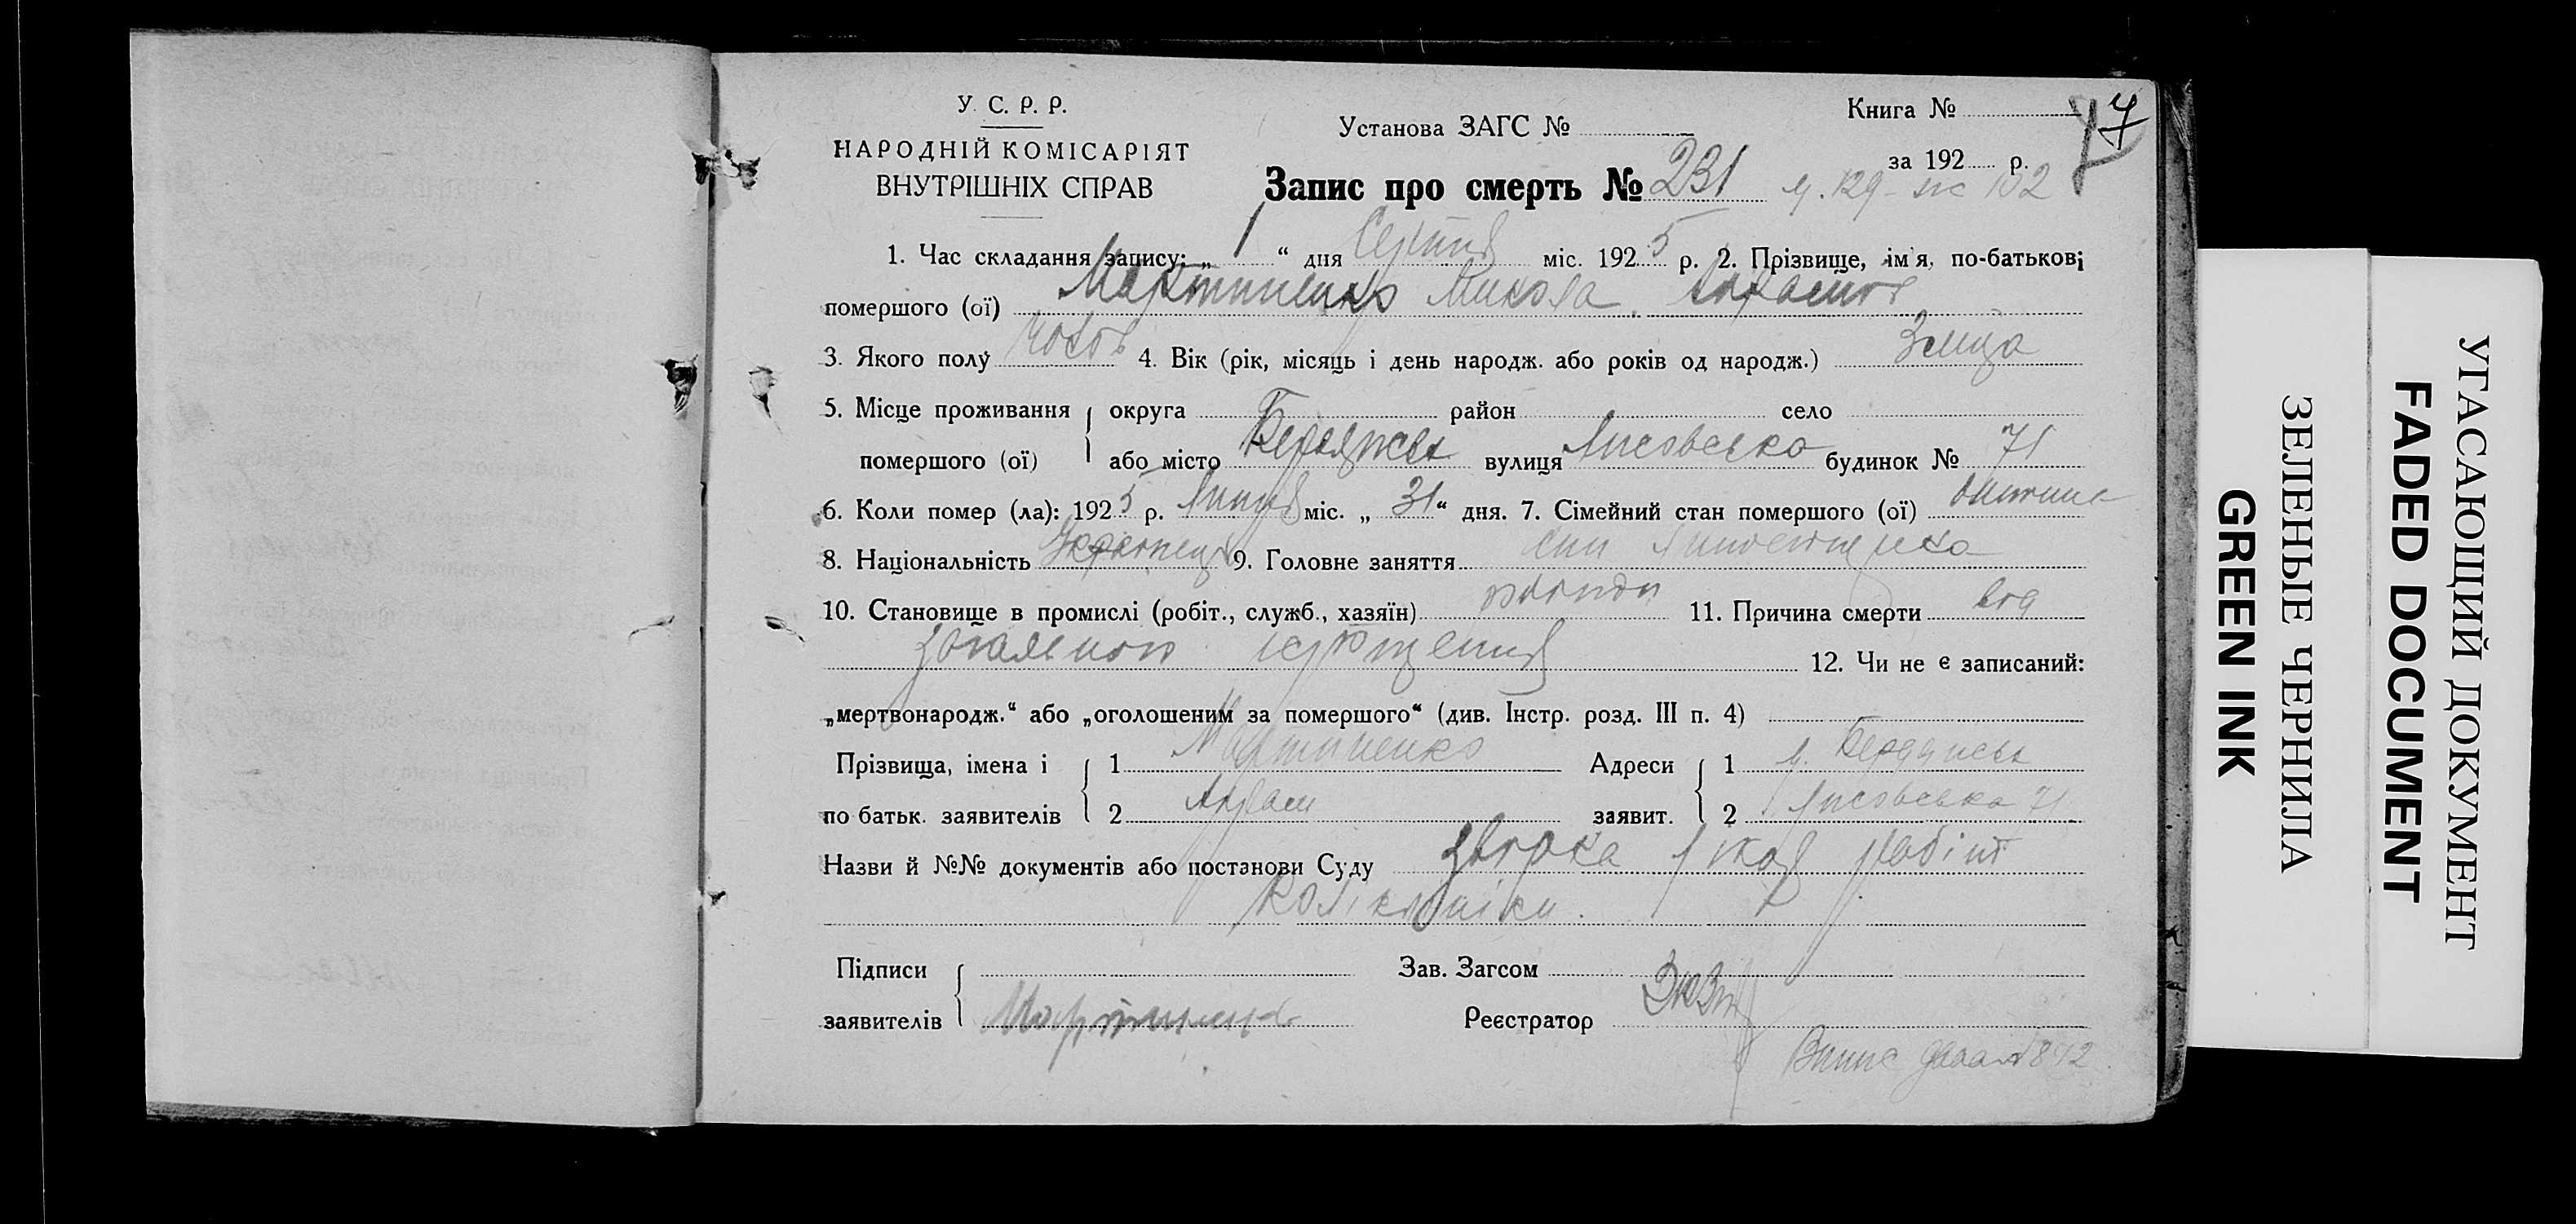 У. С. Р. Р.
НАРОДНІЙ КОМІСАРІЯТ
ВНУТРІШНІХ СПРАВ
Установа ЗАГС №
Книга №
за 192 р.
Запис про смерть № 231
1. Час складання запису: „ 1 “ дня Серпня міс. 1925 р. 2. Прізвище, ім'я, по-батькові
помершого (ої) Мартиненко Микола
3. Якого полу чолов 4. Вік (рік, місяць і день народж. або років од народж.)
5. Місце проживання округа район село
помершого (ої) або місто Бердянськ вулиця Лисовська будинок № 71
6. Коли помер (ла): 1925 р. Липня міс. „ 31 “ дня. 7. Сімейний стан помершого (ої) дитина
8. Національність Українец 9. Головне заняття син
10. Становище в промислі (робіт., служб., хазяїн) 11. Причина смерти від
загального істощения
12. Чи не є записаний:
„мертвонародж.“ або „оголошеним за помершого“ (див. Інстр. розд. III п. 4)
Прізвища, імена і 1 Мартиненко Адреси 1 м. Бердянськ
по батьк. заявителів 2 заявит. 2 Лисовська 71
Назви й №№ документів або постанови Суду робіт
Поліклініки.
Підписи Зав. Загсом
заявителів Мартиненко Реєстратор
УГАСАЮЩИЙ ДОКУМЕНТ
FADED DOCUMENT
ЗЕЛЕНЫЕ ЧЕРНИЛА
GREEN INK